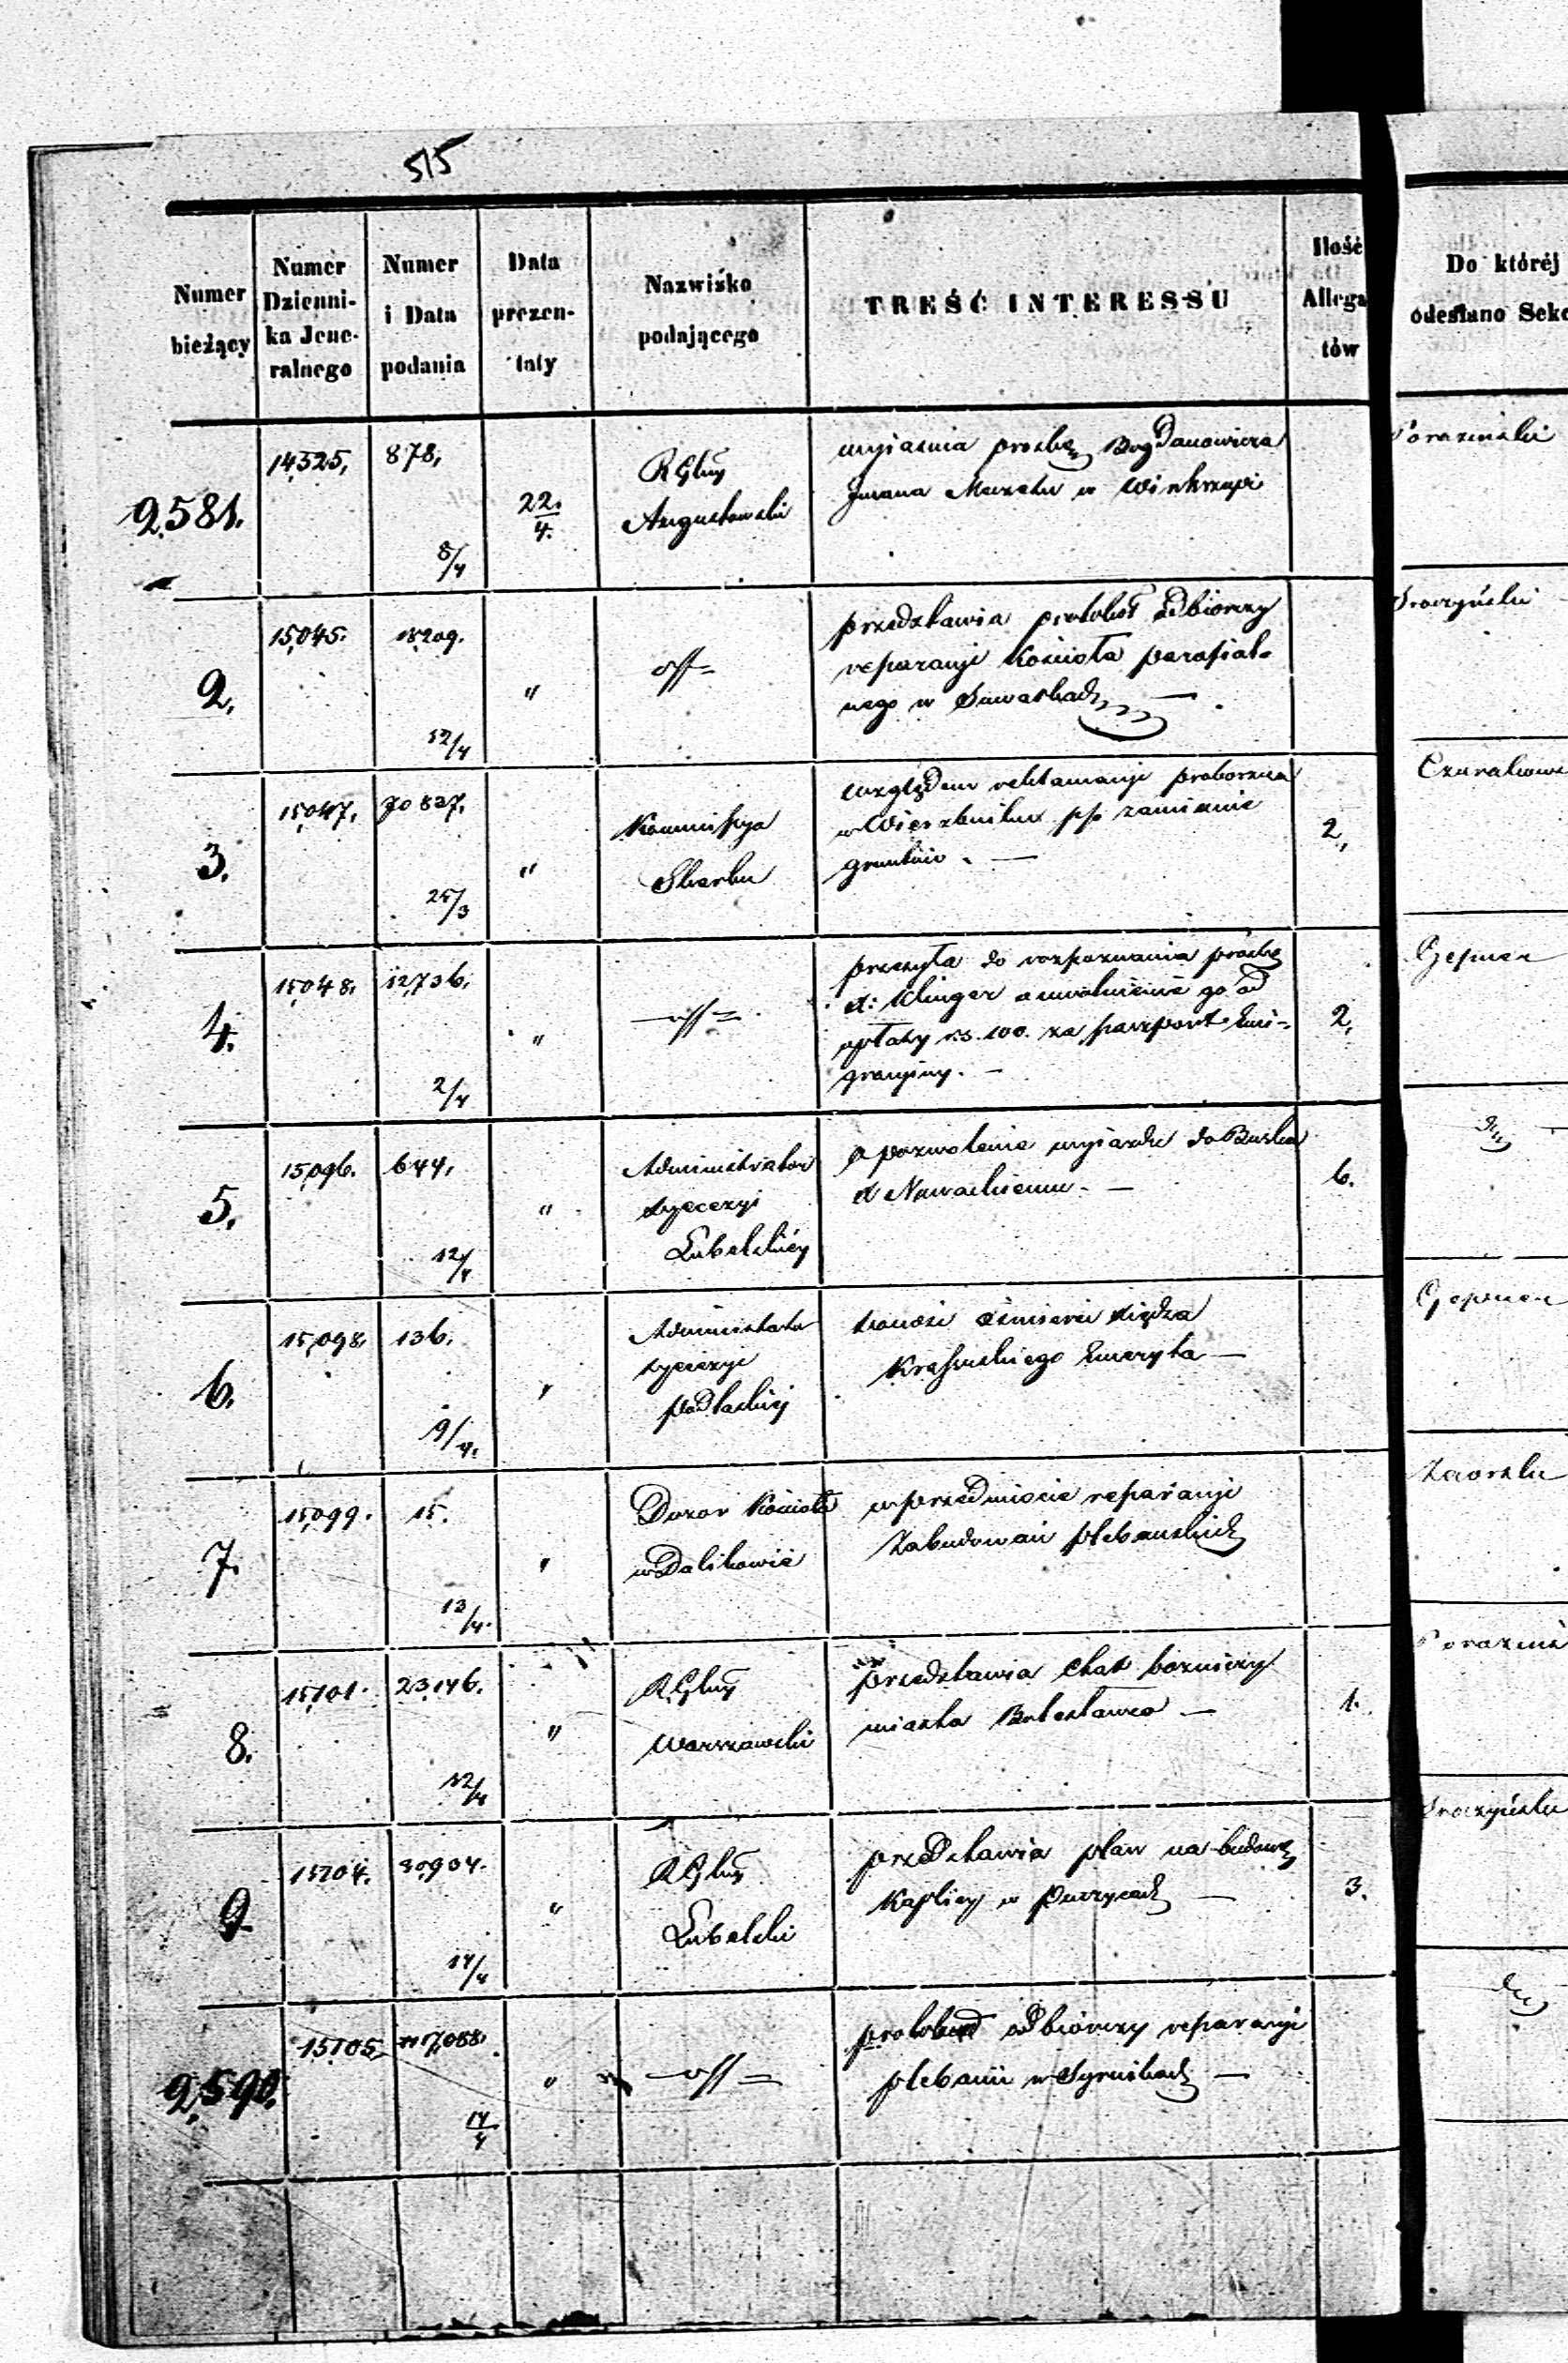 515
Numer bieżący
Numer Dzienni-ka Jene-ralnego
Numer i Data podania
Data prezen-taty
Nazwisko podającego
TREŚĆ INTERESSU
Ilość Allega tów
Do któréj odesłano Sekc
2,581.
14,325,
878,
8/4
22./4.
RGlny
Augustowski
wyjaśnia prośbę Bogdanowicza
w
2,
15,045.
18,209.
12/4
"
przedstawia protokół odbiorczy
reparacyi Kościoła parafial-
nego w Suwałkach
3.
15,047,
25/3
"
Kommissya
Skarbu
względem reklamacyi proboszcza
w Wierzbniku zamianie
gruntów. —
2,
4.
15,048.
12,736.
2/4
"
przesyła do rozpoznania prośbę
Klinger o uwolnienie go od
opłaty rs. 100. za paszport Emi-
gracyiny. —
2,
Gepner
5.
15,096.
644,
12/4
"
Administrator
dyecezyi
Lubelskiéj
o pozwolenie wyjazdu do Buska
X Nowackiemu. —
6.
6.
15,098.
136.
9/4.
"
Administrator
dyecezyi
podlaskiéj
donosi o śmierci Księdza
Emeryta —
Gepner
7.
15,099.
15.
13/4.
"
Dozor Kościoła
w Dalikowie
w przedmiocie reparacyi
Zabudowań plebańskich
8.
15,101.
23,146.
12/4
"
RGlny
Warszawski
przedstawia Etat bozniczy
miasta Bolesławca —
1.
9
15,104.
30,904.
14/4
"
RGlny
Lubelski
przedstawia plan na budowę
Kaplicy w —
3.
2,590.
15,105,
14/4
"
protokół odbiórczy reparacyi
plebanii w Syrnikach —